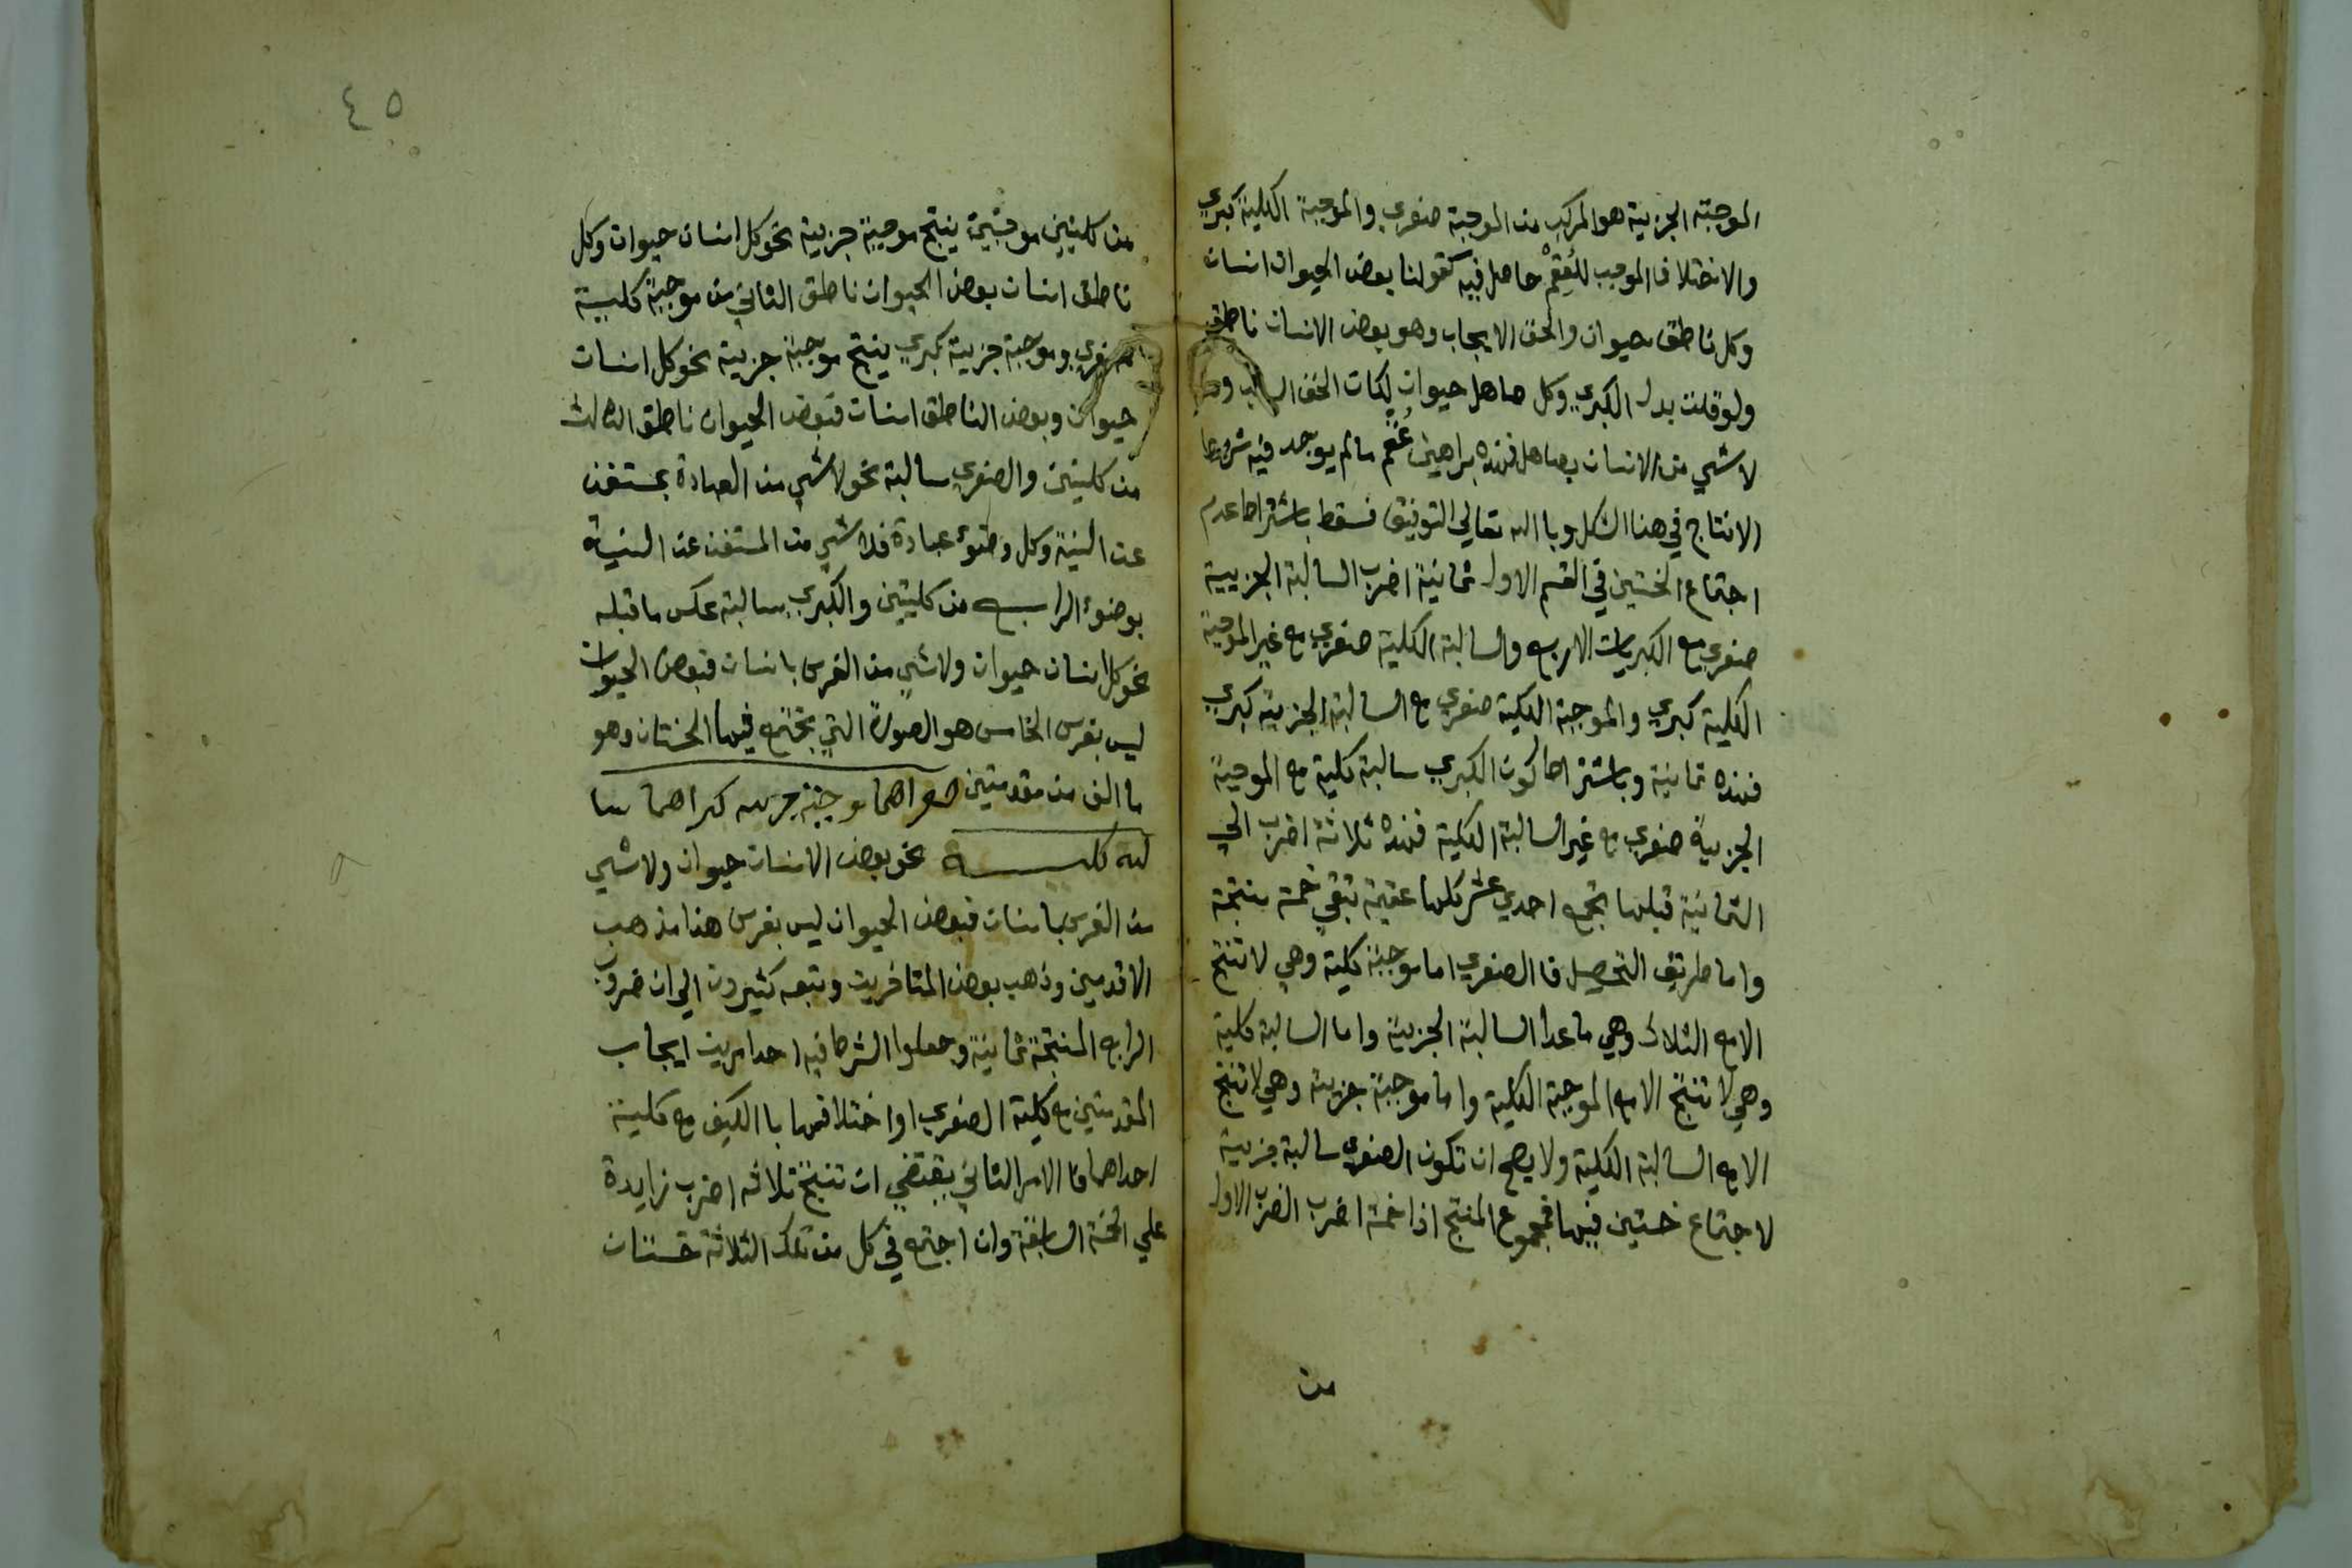 الموجبة الجزيية هو المركب من الموجبة صغري والموجبة الكلية كبري
والاختلاف الموجب للعقم حاصل فيه كقولنا بعض الحيوان انسان
وكل ناطق حيوان والحق الايجاب وهو بعض الانسان ناطق
ولو قلت بدل الكبري وكل صاهل حيوان لكان الحق السلب وهو
لاشي من الانسان بصاهل فهذه براهين عقم مالم يوجد فيه شرطا
الانتاج في هذا الشكل وباالله تعالي التوفيق فسقط باشتراط عدم
اجتماع الخستين في القسم الاول ثمانية اضرب السالبة الجزيية
صغري مع الكبريات الاربع والسالبة الكلية صغري مع غير الموجبة
الكلية كبري والموجبة الكلية صغري مع السالبة الجزيية كبري
فهذه ثمانية وباشتراط كون الكبري سالبة كلية مع الموجبة
الجزيية صغري مع غير السالبة الكلية فهذه ثلاثة اضرب الي
الثمانية قبلها تجمع احدي عشر كلها عقيمة تبقي خمسة منتجة
واما طريق التحصيل فا الصغري اما موجبة كلية وهي لا تنتج
الامع الثلاث وهي ماعدا السالبة الجزيية واما السالبة كلية
وهي لا تنتج الامع الموجبة الكلية واما موجبة جزيية وهي لا تنتج
الامع السالبة الكلية ولا يصح ان تكون الصغري سالبة جزيية
لاجتماع خستين فيها فمجموع المنتج اذا خمسة اضرب الضرب الاول
من
٤٥
من كليتين موجبتين ينتج موجبة جزيية نحو كل انسان حيوان وكل
ناطق انسان بعض الحيوان ناطق الثاني من موجبة كلية
صغري وموجبة جزيية كبري ينتج موجبة جزيية نحو كل انسان
حيوان وبعض الناطق انسان فبعض الحيوان ناطق الثالث
من كليتين والصغري سالبة نحو لاشي من العبادة بمستغن
عن النية وكل وضوء عبادة فلا شي من المستغن عن النية
بوضوء الرابع من كليتين والكبري سالبة عكس ما قبله
نحو كل انسان حيوان ولاشي من الفرس بانسان فبعض الحيوان
ليس بفرس الخامس هو الصورة التي تجتمع فيها الخستان وهو
ما الف من مقدمتين صغراهما موجبة جزيية كبراهما سا
لبة كلية نحو بعض الانسان حيوان ولاشي
من الفرس بانسان فبعض الحيوان ليس بفرس هذا مذهب
الاقدمين وذهب بعض المتاخرين وتبعه كثيرون الي ان ضروب
الرابع المنتجة ثمانية وجعلوا الشرط فيه احد امرين ايجاب
المقدمتين مع كلية الصغري او اختلافهما باالكيف مع كلية
احداهما فا الامر الثاني يقتضي ان تنتج ثلاثه اضرب زايدة
علي الخمسة السابقة وان اجتمع في كل من تلك الثلاثة خستان